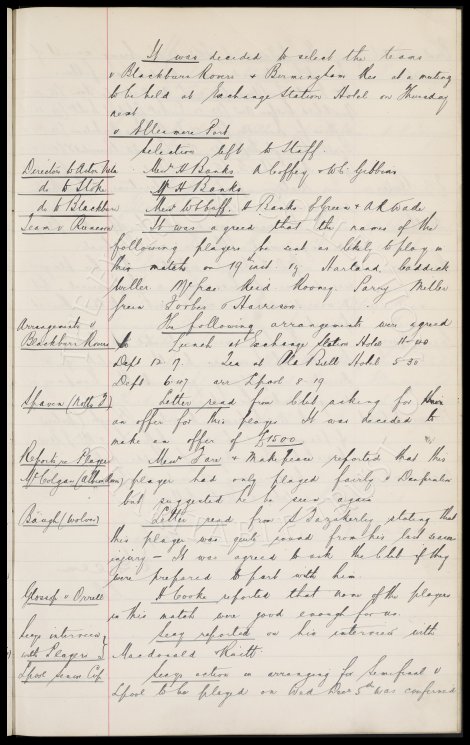 It was decided to select the teams
v Blackburn Rovers & Birmingham Res at a meeting
to be held at Exchange Station Hotel on Thursday
next
v Ellesmere Port
Selection left to Staff.
Director to Aston Villa Messrs H Banks A Coffey & W C Gibbins
do to Stoke Mr H Banks
do to Blackburn Messrs W C Cuff. H Banks E Green & A R Wade
Team v Runcorn It was agreed that the names of the
following players be sent as likely to play in
this match on 19th inst. by Harland, Caddick
Weller McFae Reid Rooney. Parry Meller
Green Forbes & Harrison.
Arrangements v The following arrangements were agreed
Blackburn Rovers to Lunch at Exchange Station Hotel 11-40
Dept 12-17. Tea at Old Bull Hotel 5 30
Dept 6.47 arr Lpool 8-19
Spaven (Notts F) Letter read from club asking for
an offer for this player. It was decided to
make an offer of £1500
Reports re Players Messrs Fare & Makepeace reported that this
McColgan (Albion Rov) player had only played fairly v Dunfermline
but suggested he be seen again
Baugh (Wolves) Letter read from S Fazackerley stating that
this player was quite sound from his last season
injury - It was agreed to ask the club if they
were prepared to part with him.
Glossop v Orrell H Cooke reported that none of the players
in this match were good enough for us.
Secys interview Secy reported on his interview with
with Players Macdonald & Raitt
Lpool Senior Cup Secys action in arranging for Semifinal v
Lpool to be played on Wed Dec 5th was confirmed